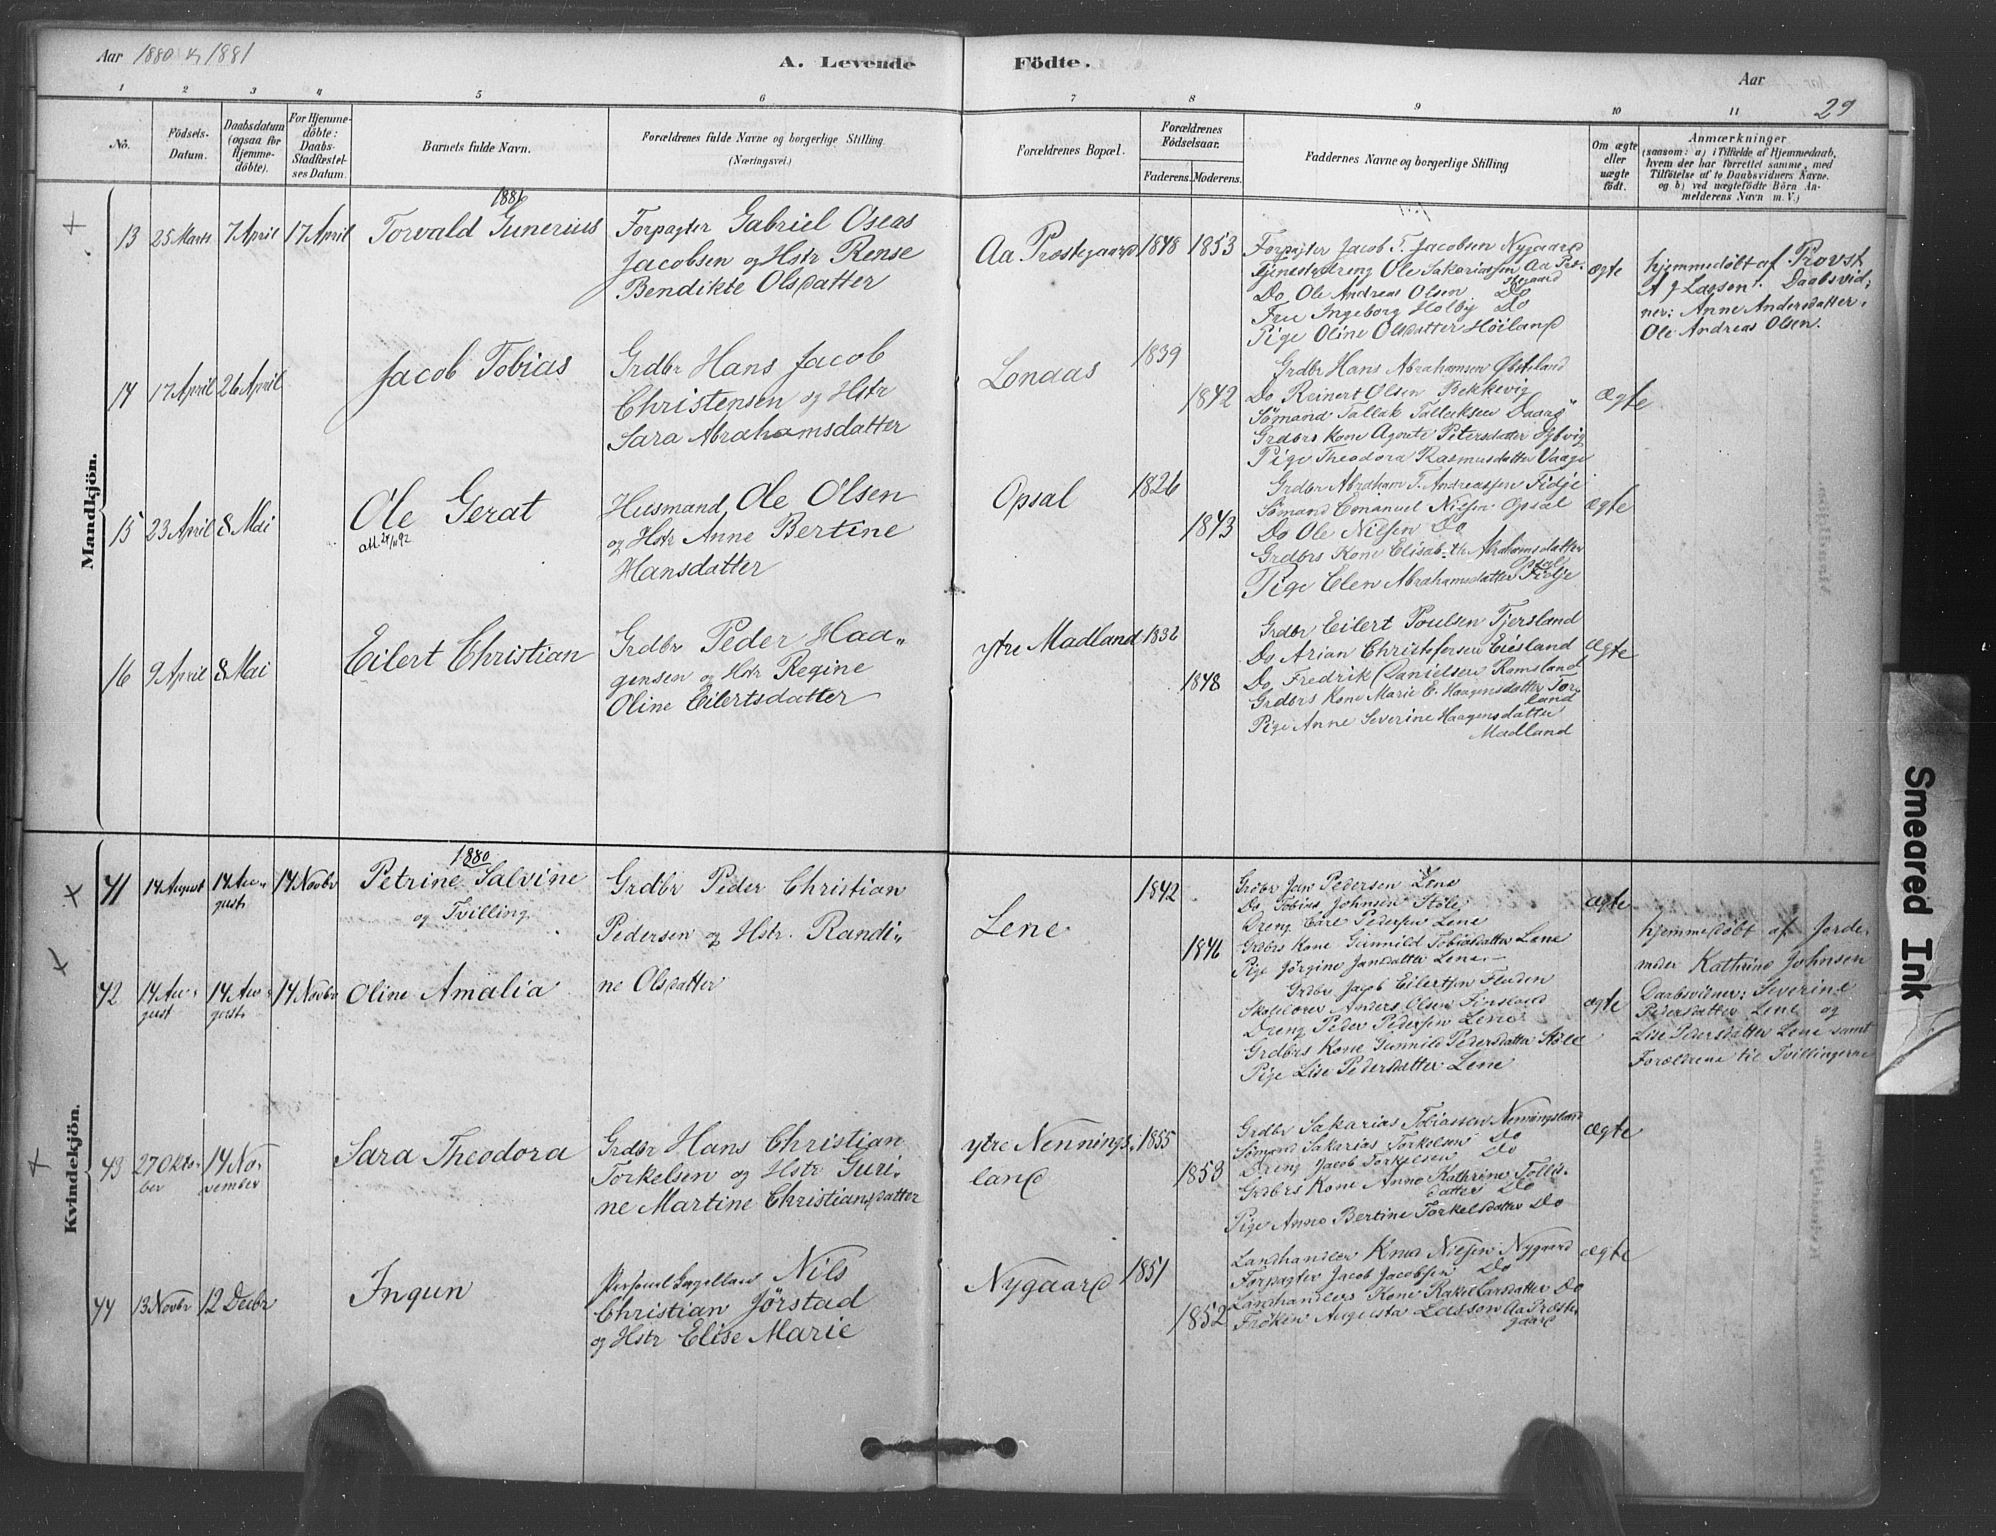 Aar 1880 & 1881
A. Levende Födte.
Aar
29
1 2 3 4 5 6 7 8 9 10 11
No.
Födsels-
Datum.
Daabsdatum
(ogsaa for
Hjemme-
döbte).
For Hjemme-
döbte:
Daabs-
Stadfæstel-
ses Datum.
Barnets fulde Navn.
Forældrenes fulde Navne og borgerlige Stilling
(Næringsvei.)
Forældrenes Bopæl.
Forældrenes
Födselsaar.
Faderens. Moderens.
Faddernes Navne og borgerlige Stilling
Om ægte
eller
uægte
födt.
Anmærkninger
(saasom: a) i Tilfælde af Hjemmedaab,
hvem der har forrettet samme, med
Tilföielse af to Daabsvidners Navne.
og b) ved uægtefödte Börn An-
melderens Navn m. V.)
Mandkjön.
1881
13 25 Marts 7 April 17 April Torvald Gunerius
Forpagter Gabriel Oseas
Jacobsen og Hstr Rense
Bendikte Olsdatter
Aa Præstegaard 1848 1853
Forpagter Jacob T. Jacobsen Nygaard
Tjenestedreng Ole Sakariassen Aa Præ-
stegaard
Do Ole Andreas Olsen Do
Fru Ingeborg Holby Do
Pige Oline Olsdatter Höiland
ægte
hjemmedöbt af Provst
A J Lassen. Daabsvid-
ner: Anne Andersdatter.
Ole Andreas Olsen.
14 17 April 26 April Jacob Tobias
Grdbr Hans Jacob
Christensen og Hstr
Sara Abrahamsdatter
Lonaas 1839 1842
Grdbr Hans Abrahamsen
Do Reinert Olsen Bekkevig
Sömand Tallak Tallaksen
Grdbrs Kone Agnete Petersdatter
Pige Theodora Rasmusdatter Vaage
Ægte
15 23 April 8 Mai Ole Gerat
att 24/11 92
Husmand Ole Olsen
og Hstr Anne Bertine
Hansdatter
Opsal 1826 1843
Grdbr Abraham T. Andreassen Fidje
Sömand Emanuel Nilsen Opsal
Do Ole Nilsen Do
Grdbrs Kone Elisabeth Abrahamsdatter
Opsal
Pige Elen Abrahamsdatter Fidje
ægte
16 9 April 8 Mai Eilert Christian
Grdbr Peder Haa-
gensen og Hstr Regine
Oline Eilertsdatter
ytre Madland 1832 1848
Grdbr Eilert Poulsen Tjersland
Do Arian Christofersen Eiesland
Do Fredrik Danielsen Ramsland
Grdbrs Kone Marie E. Haagensdatter Tor-
land
Pige Anne Severine Haagensdatter
Madland
Ægte
Kvindekjön.
1880
41 14 August 14 Au-
gust 14 Novbr Petrine Salvine
og Tvilling
Grdbr Peder Christian
Pedersen og Hstr. Randi-
ne Olsdatter
Lene 1842 1846
Grdbr Jan Pedersen Lene
Do Tobias Johnsen Stöle
Dreng Carl Pedersen Lene
Grdbrs Kone Gunnild Tobiasdatter Lene
Pige Jörgine Jansdatter Lene
ægte
hjemmedöbt af Jorde-
moder Kathrine Johnsen
Daabsvidner: Severine
Pedersdatter Lene og
Lise Pedersdatter Lene samt
Forældrene til Tvillingerne
42 14 Au-
gust 14 Au-
gust 14 Novbr Oline Amalia
Grdbr Jacob Eilertsen Fladen
Skolelærer Anders Olsen Finsland
Dreng Peder Pedersen Lene
Grdbrs Kone Gunnild Pedersdatter Stöle
Pige Lise Pedersdatter Lene
ægte
43 27 Okto-
ber 14 No-
vember Sara Theodora
Grdbr Hans Christian
Torkelsen og Hstr Guri-
ne Martine Christiansdatter
ytre Nennings-
land 1855 1853
Grdbr Sakarias Tobiassen Nenningsland
Sömand Sakarias Torkelsen Do
Dreng Jacob Torkelsen Do
Grdbrs Kone Anne Kathrine Tolls-
datter Do
Pige Anne Bertine Torkelsdatter Do
ægte
44 13 Novbr 12 Decbr Ingun
Personel Kapellan Nils
Christian Jörstad
og Hstr Elise Marie
Nygaard 1851 1852
Landhandler Knud Nilsen Nygaard
Forpagter Jacob Jacobsen Do
Landhandlers Kone Rakel Larsdatter Do
Fröken Augusta Lassen Aa Præste-
gaard
ægte
Smeared Ink